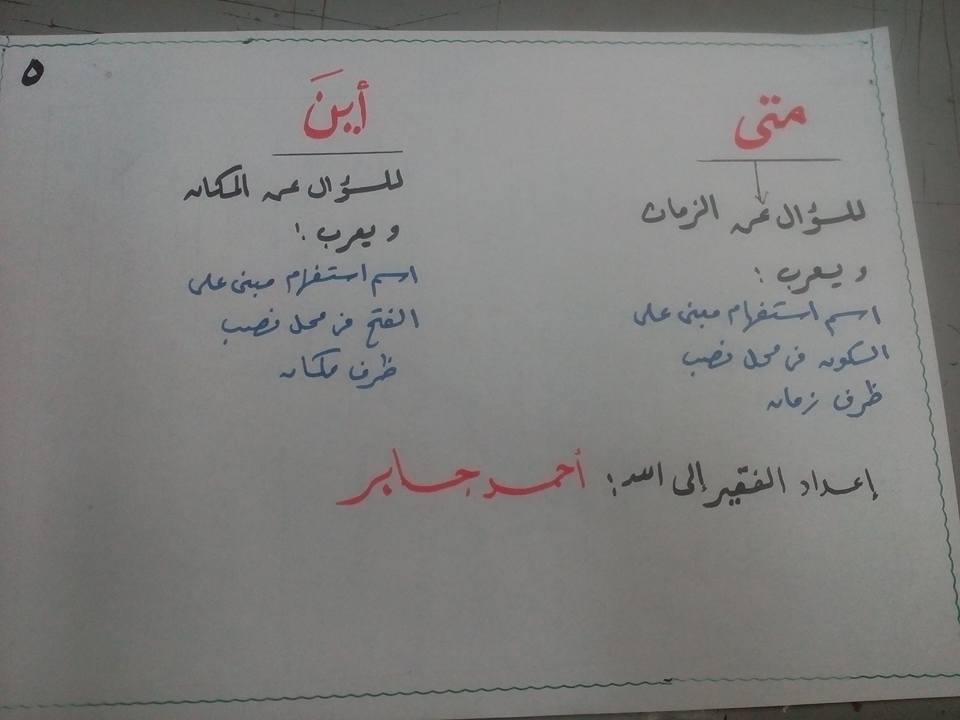 ٥
متى
للسؤال عن الزمان
و يعرب :
اسم استفهام مبنى على
السكون فى محل نصب
ظرف زمان
أينَ
للسؤال عن المكان
و يعرب :
اسم استفهام مبنى على
الفتح فى محل نصب
ظرف مكان
إعداد الفقير إلى الله : أحمد جابر